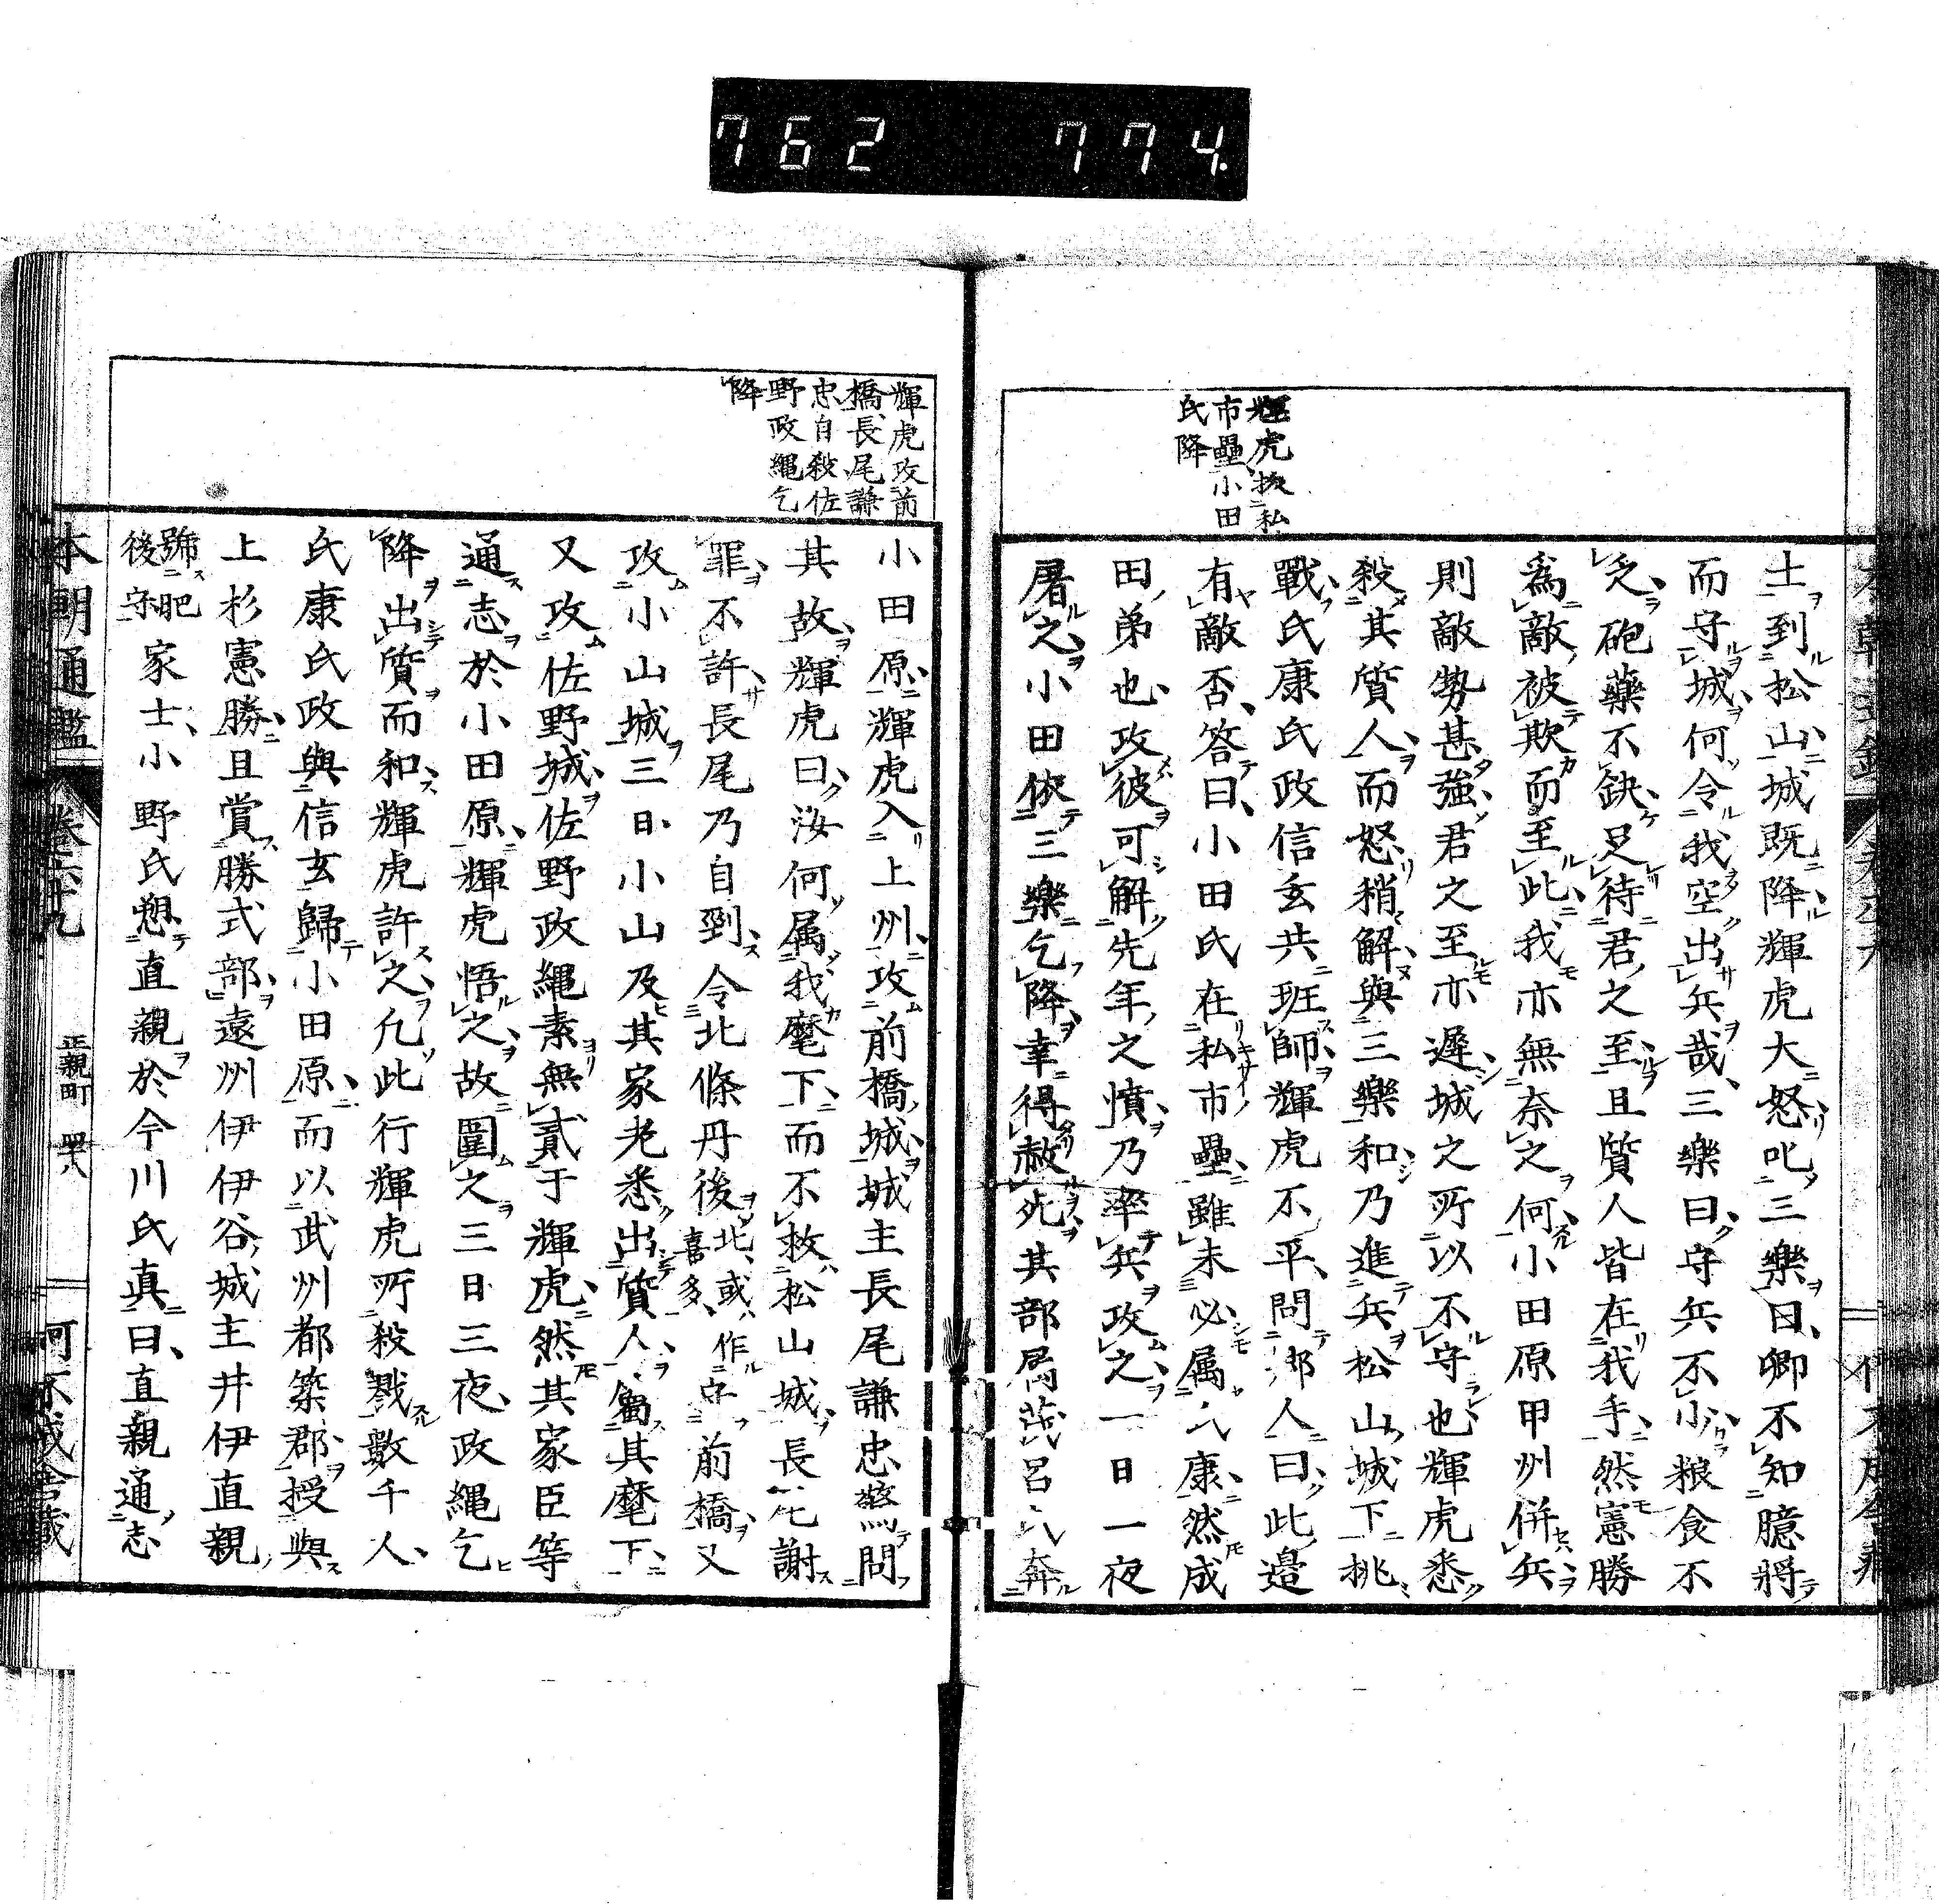 762 774.
輝虎拔私
市壘小田
氏降
土到松山城既降輝虎大怒叱三樂曰卿不知臆將
而守城何令我空出兵哉三樂曰守兵不少粮食不
乏砲藥不缺足待君之至且質人皆在我手然憲勝
爲敵被欺而至此我亦無奈之何小田原甲州併兵
則敵勢甚強君之至亦遲城之所以不守也輝虎悉
殺其質人而怒稍解與三樂和乃進兵松山城下挑
戰氏康氏政信玄共班師輝虎不平問鄉人曰此邉
有敵否答曰小田氏在私市壘雖未必属氏康然成
田弟也攻彼可解先年之憤乃率兵攻之一日一夜
屠之小田依三樂乞降幸得赦死其部局茂呂氏奔
輝虎攻前
橋長尾謙
忠自殺佐
野政繩乞
降
小田原輝虎入上州攻前橋城城主長尾謙忠驚問
其故輝虎曰汝何属我麾下而不救松山城長尾謝
罪不許長尾乃自剄令北條丹後北或作喜多守前橋又
攻小山城三日小山及其家老悉出質人屬其麾下
又攻佐野城佐野政繩素無貳于輝虎然其家臣等
通志於小田原輝虎悟之故圍之三日三夜政繩乞
降出質而和輝虎許之凢此行輝虎所殺戮數千人
氏康氏政與信玄歸小田原而以武州都築郡授與
上杉憲勝且賞勝式部遠州伊伊谷城主井伊直親
號肥後守家士小野氏愬直親於今川氏真曰直親通志
本朝通鑑 卷六十九 正親町 四十八